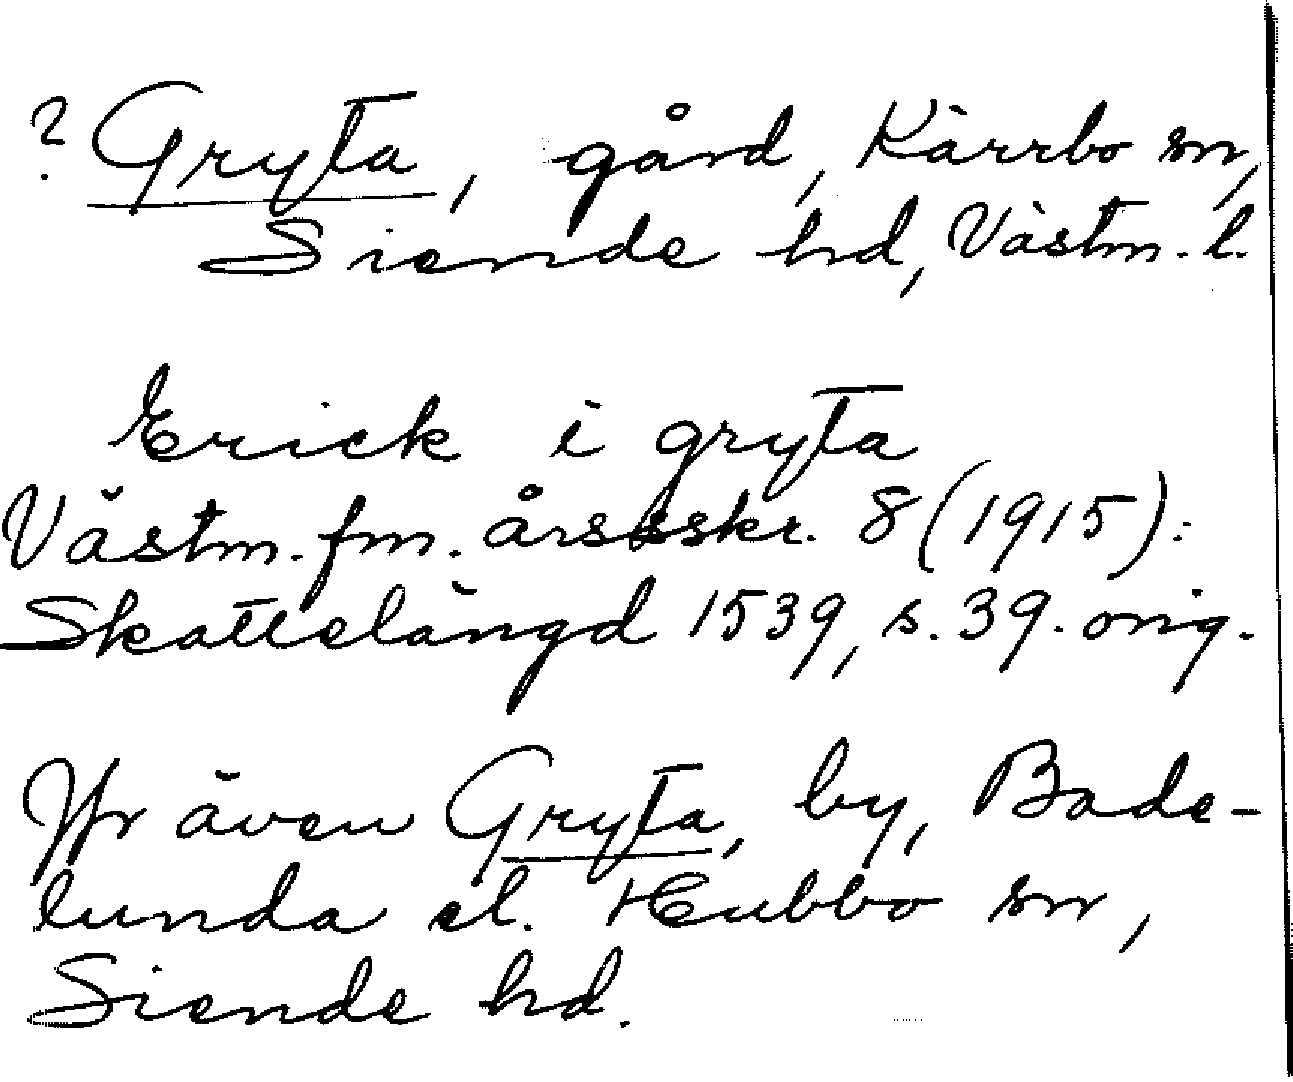 ? Gryta, gård, Kärrbo sn,
Siende hd, Västm. l.
Erick i gryta
Västm. fm. årsskr. 8 (1915):
Skattelängd 1539, s. 39. orig.
Jfr även Gryta, by, Bade-
lunda el. Hubbo sn,
Siende hd.